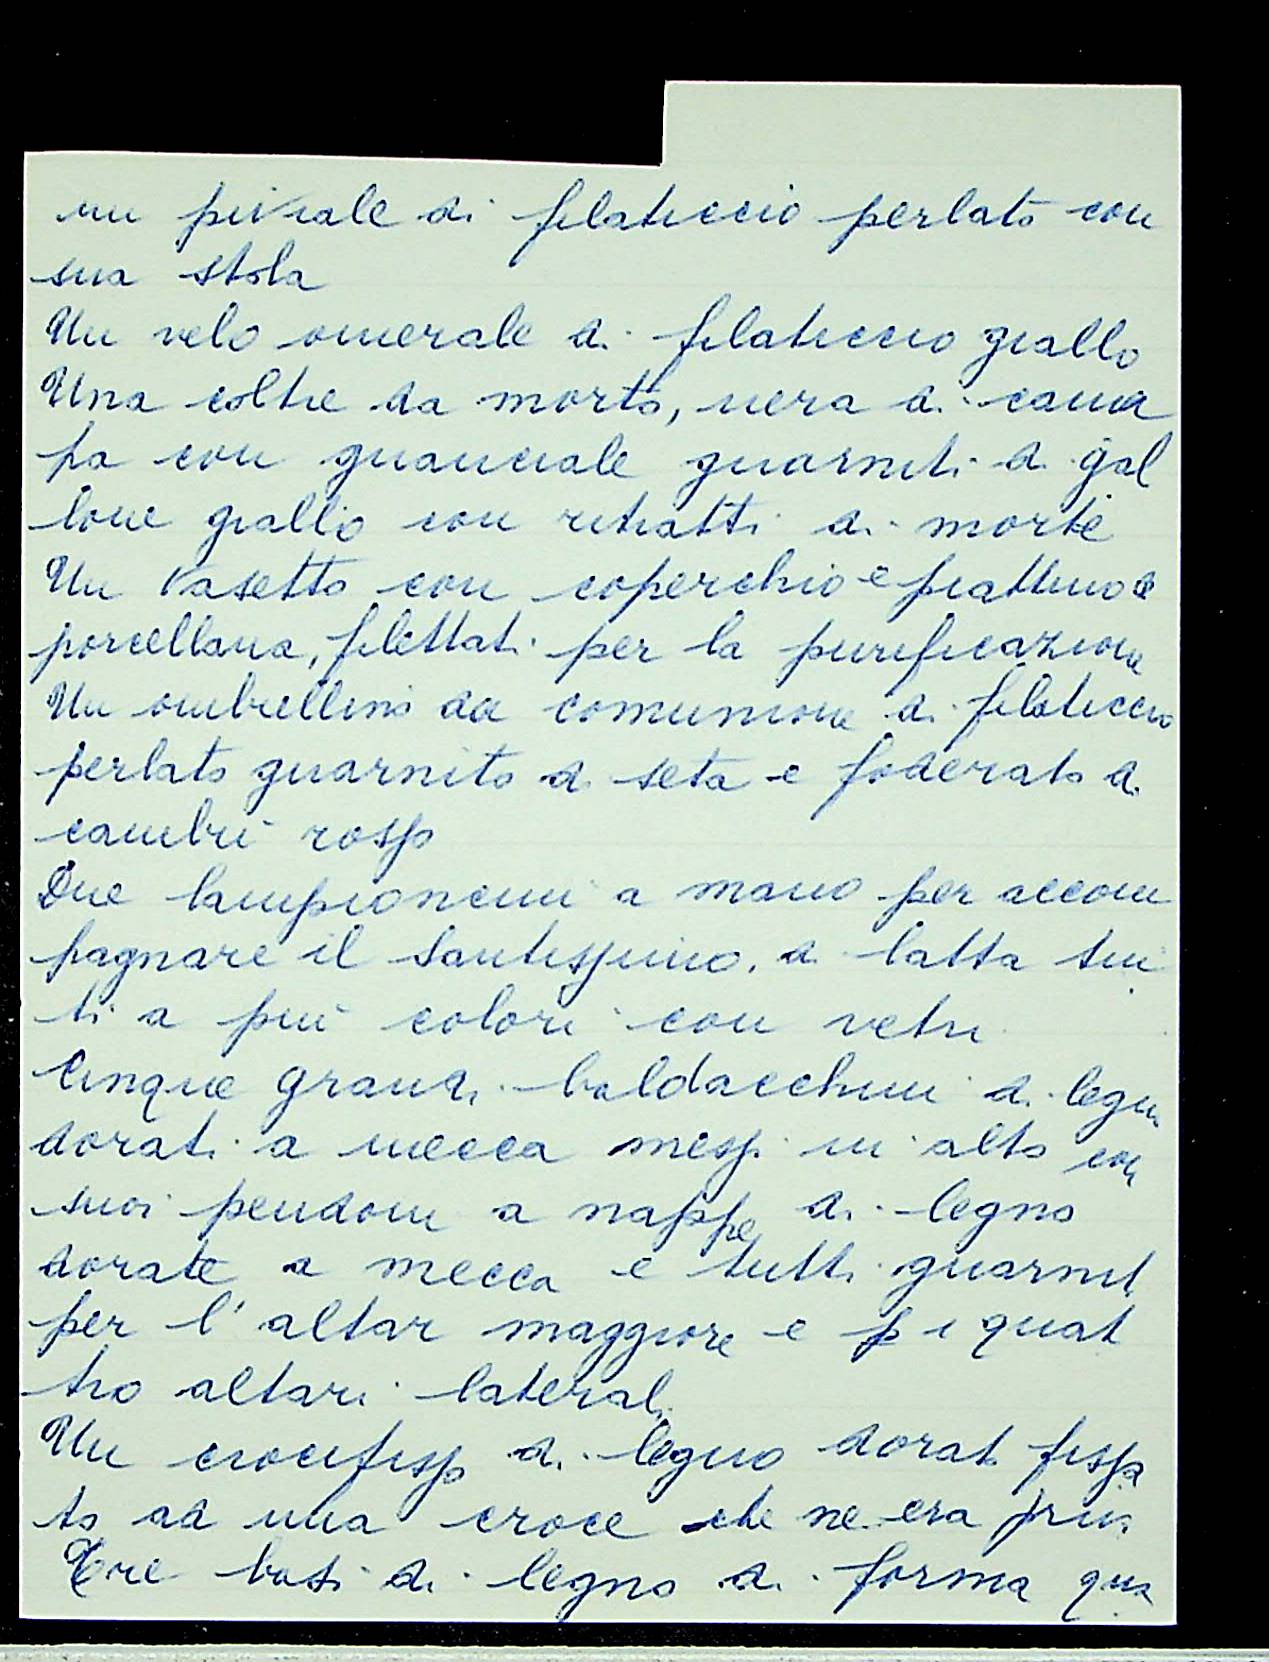 un piviale di filaticcio perlato con
sua stola
Un velo omerale di filaticcio giallo
Una coltre da morto, nera di cana
pa con guanciale guarniti di gal
lone giallo con ritratti di morte
Un vasetto con coperchio e piattino di
porcellana, filettati per la purificazione
Un ombrellino da comunione di filaticcio
perlato guarnito di seta e foderato di
cambrì rosso
Due lampioncini a mano per accom
pagnare il Santissimo, di latta tin
ti a più colori con vetri
Cinque grandi baldacchini di legno
dorati a mecca messi in alto con
suoi pendoni a nappe di legno
dorate a mecca e tutti guarniti
per l'altar maggiore e p i quat
tro altari laterali
Un crocifisso di legno dorato fissa
to ad una croce che ne era priva
Tre basi di legno di forma qua